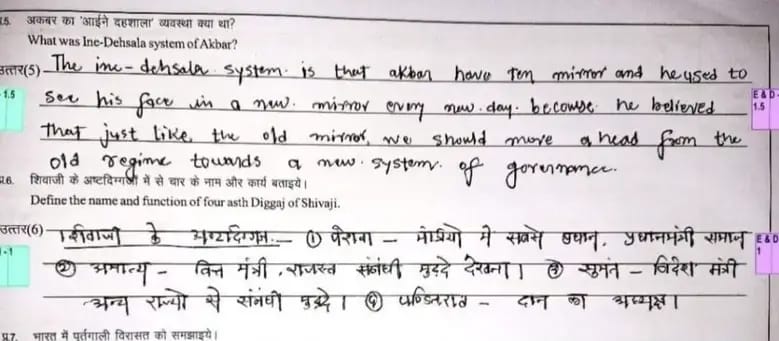 5. अकबर का 'आईने दहशाला' व्यवस्था क्या था?
What was Ine-Dehsala system of Akbar?
उत्तर(5) The ine-dehsala system is that akbar have Ten mirror and he used to
1.5 see his face in a new mirror every new day. because he believed E & D 1.5
that just like the old mirror, we should move ahead from the
old regime towards a new system of governance.
प्र.6. शिवाजी के अष्टदिग्गजों में से चार के नाम और कार्य बताइये।
Define the name and function of four asth Diggaj of Shivaji.
उत्तर(6) शिवाजी के अष्टदिग्गज - ① पेशवा - मंत्रियों में सबसे प्रधान, प्रधानमंत्री समान E & D
-1 ② अमात्य - वित्त मंत्री, राजस्व संबंधी मुद्दे देखना। ③ सुमंत - विदेश मंत्री 1
अन्य राज्यों से संबंधी मुद्दे। ④ पण्डितराव - दान का अध्यक्ष।
प्र.7. भारत में पुर्तगाली विरासत को समझाइये।